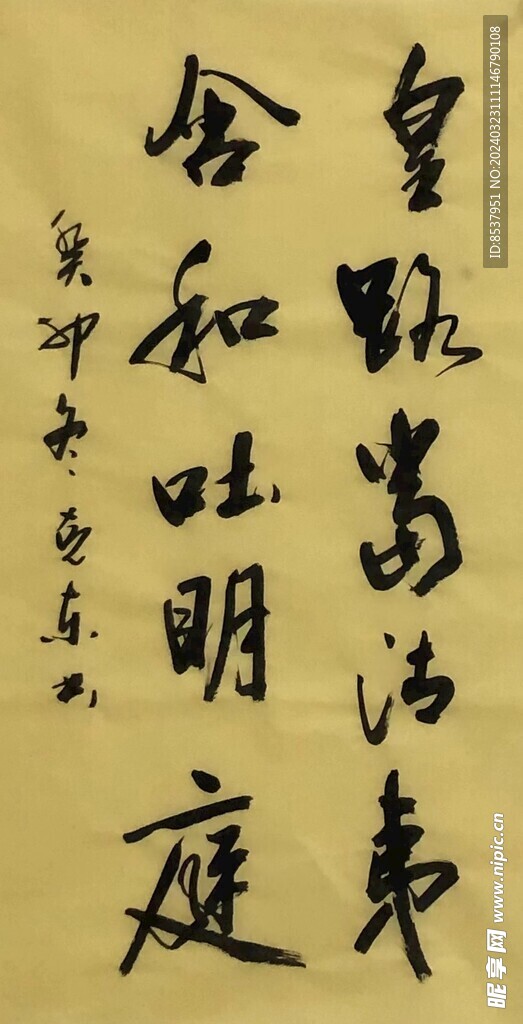 皇路當清夷
含和吐明庭
癸卯冬克东书
ID:8537951 NO:20240323111146790108
昵享网 www.nipic.cn